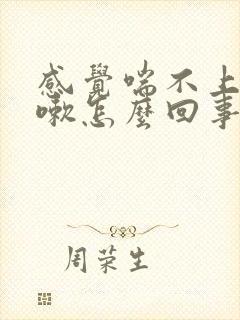 感覺喘不上
嗽怎麼回事
周荣生